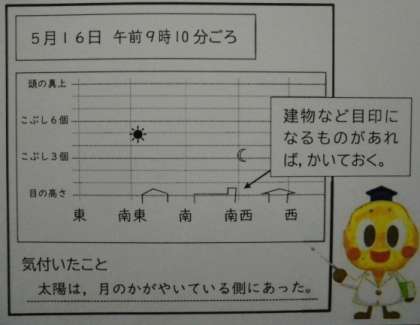 5月16日 午前9時10分ごろ
頭の真上
こぶし6個
こぶし3個
目の高さ
東 南東 南 南西 西
建物など目印に
なるものがあれ
ば,かいておく。
気付いたこと
太陽は,月のかがやいている側にあった。